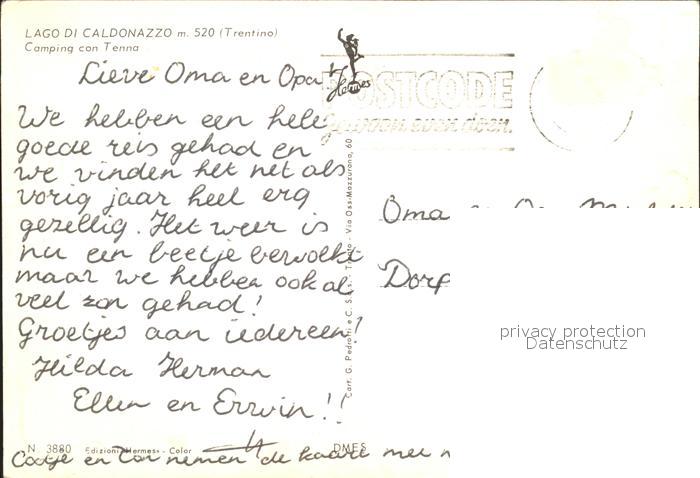 LAGO DI CALDONAZZO m. 520 (Trentino)
Camping con Tenna
Lieve Oma en Opa
Hermes
POSTCODE
gewoon even doen.
We hebben een hele
goede reis gehad en
we vinden het net als
vorig jaar heel erg
gezellig. Het weer is
nu een beetje bewolkt
maar we hebben ook al
veel zon gehad!
Groetjes aan iedereen!
Hilda Herman
Ellen en Erwin!!
Cart. G. Pedrotti e C. S.a.s. - Trento - Via Oss-Mazzurana, 60
Oma
Dorp
privacy protection
Datenschutz
N 3880 Edizioni «Hermes» - Color DMES
en Ton nemen de kaart mee